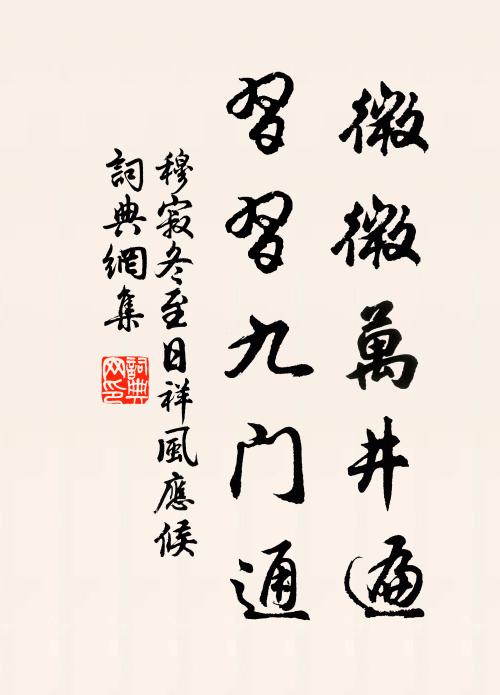 微微萬井遍
習習九门通
穆寂冬至日祥風應候
詞典網集
詞典网印